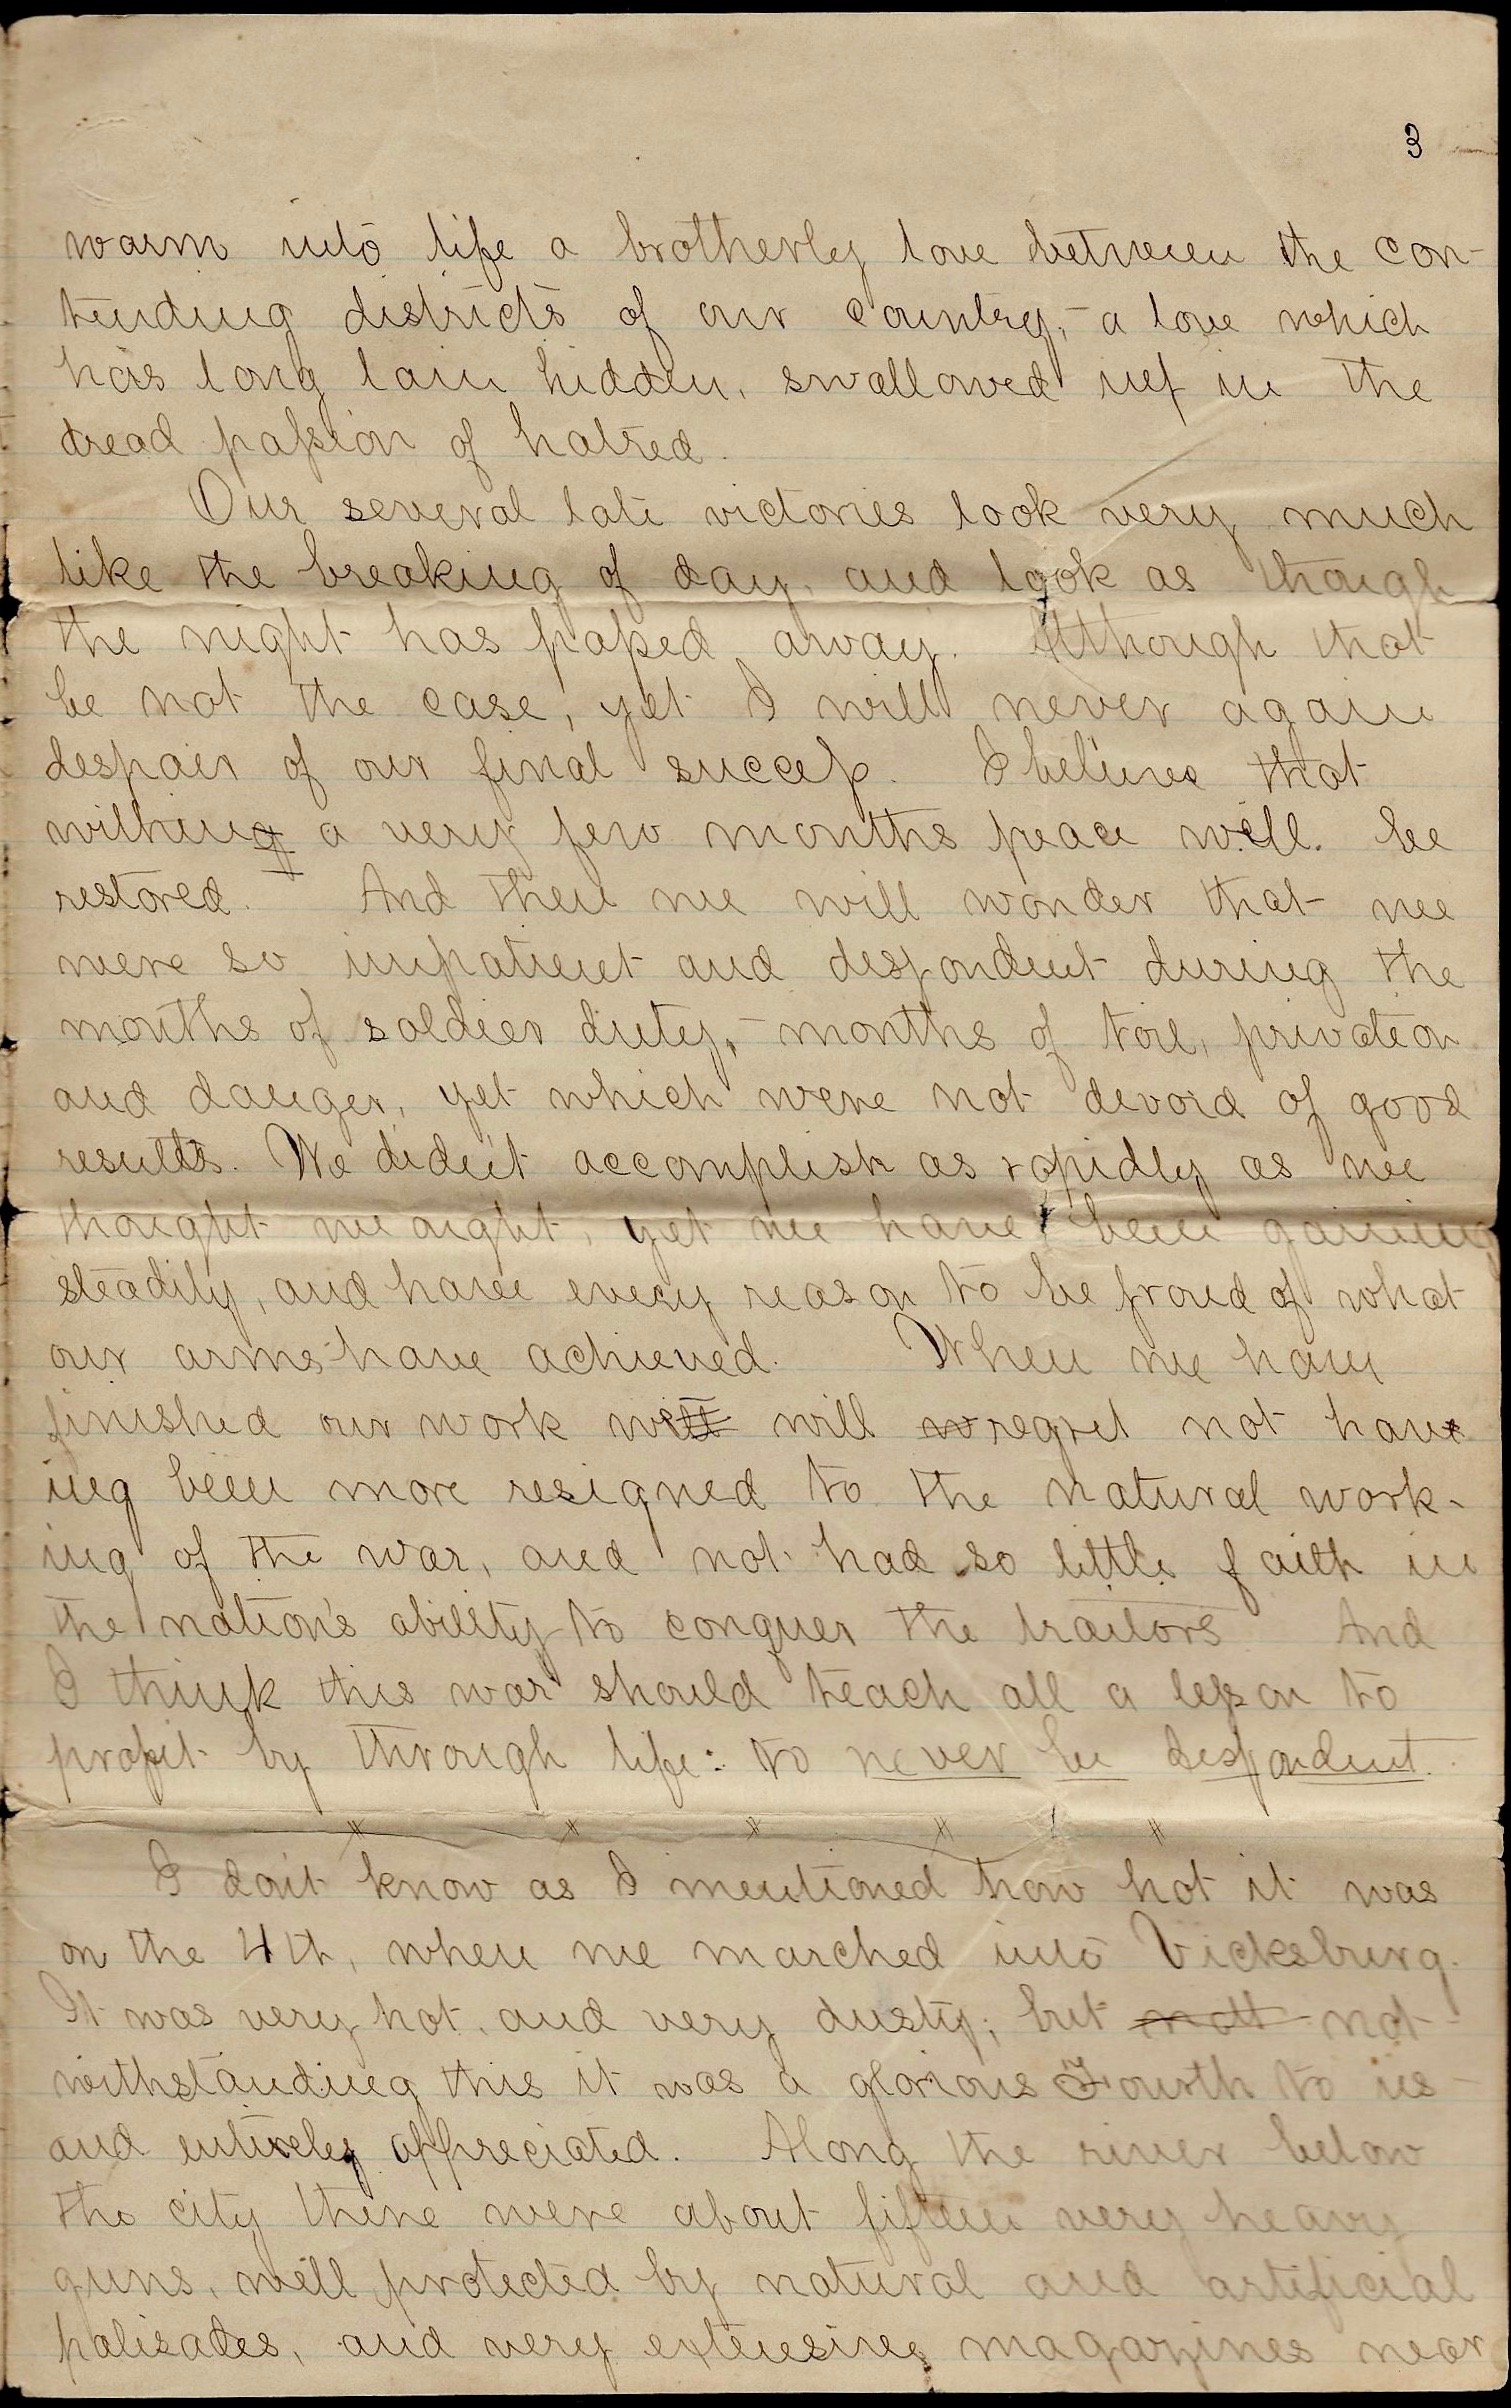 3
warm into life a brotherly love between the con-
tending districts of our country, - a love which
has long lain hidden, swallowed up in the
dread passion of hatred.
Our several late victories look very much
like the breaking of day, and look as though
the night has passed away. Although that
be not the case, yet I will never again
despair of our final success. I believe that
withing a very few months peace will be
restored. And then we will wonder that we
were so impatient and despondent during the
months of soldier duty, - months of toil, privation
and danger, yet which were not devoid of good
results. We didn't accomplish as rapidly as we
thought we aught, yet we have been gaining
steadily, and have every reason to be proud of what
our arms have achieved. When we have
finished our work we will regret not hav-
ing been more resigned to the natural work-
ing of the war, and not had so little faith in
the nation's ability to conquer the traitors. And
I think this war should teach all a lesson to
profit by through life: to never be despondent.
x x x x x
I don't know as I mentioned how hot it was
on the 4th, when we marched into Vicksburg.
It was very hot, and very dusty; but nott not-
withstanding this it was a glorious Fourth to us -
and entirely appreciated. Along the river below
the city there were about fifteen very heavy
guns, well protected by natural and artificial
palisades, and very extensive magazines near